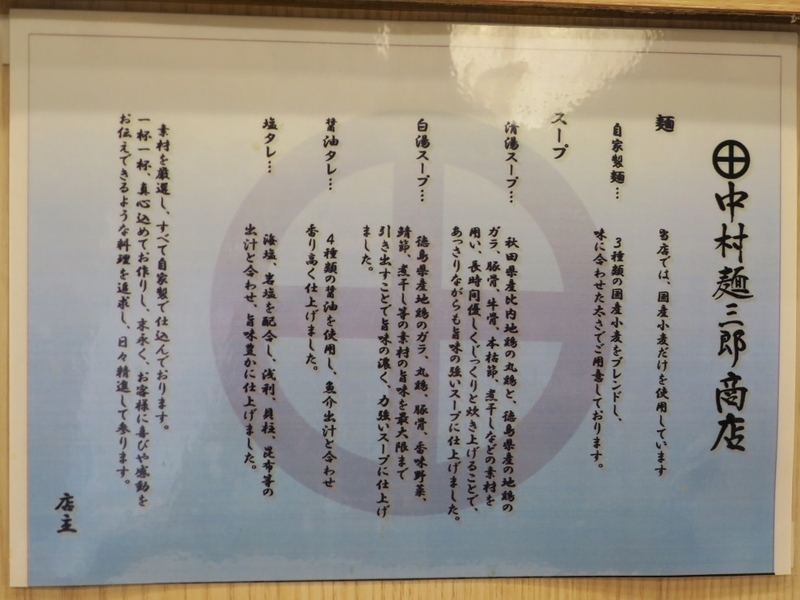 中村麺三郎商店
麺
当店では、国産小麦だけを使用しています
自家製麺…
3種類の国産小麦をブレンドし、
味に合わせた太さでご用意しております。
スープ
清湯スープ…
秋田県産比内地鶏の丸鶏と、徳島県産の地鶏の
ガラ、豚骨、牛骨、本枯節、煮干しなどの素材を
用い、長時間優しくじっくりと炊き上げることで、
あっさりながらも旨味の強いスープに仕上げました。
白湯スープ…
徳島県産地鶏のガラ、丸鶏、豚骨、香味野菜、
鯖節、煮干し等の素材の旨味を最大限まで
引き出すことで旨味の濃く、力強いスープに仕上げ
ました。
醤油タレ…
4種類の醤油を使用し、魚介出汁と合わせ
香り高く仕上げました。
塩タレ…
海塩、岩塩を配合し、浅利、貝柱、昆布等の
出汁と合わせ、旨味豊かに仕上げました。
素材を厳選し、すべて自家製で仕込んでおります。
一杯一杯、真心込めてお作りし、末永く、お客様に喜びや感動を
お伝えできるような料理を追求し、日々精進して参ります。
店主